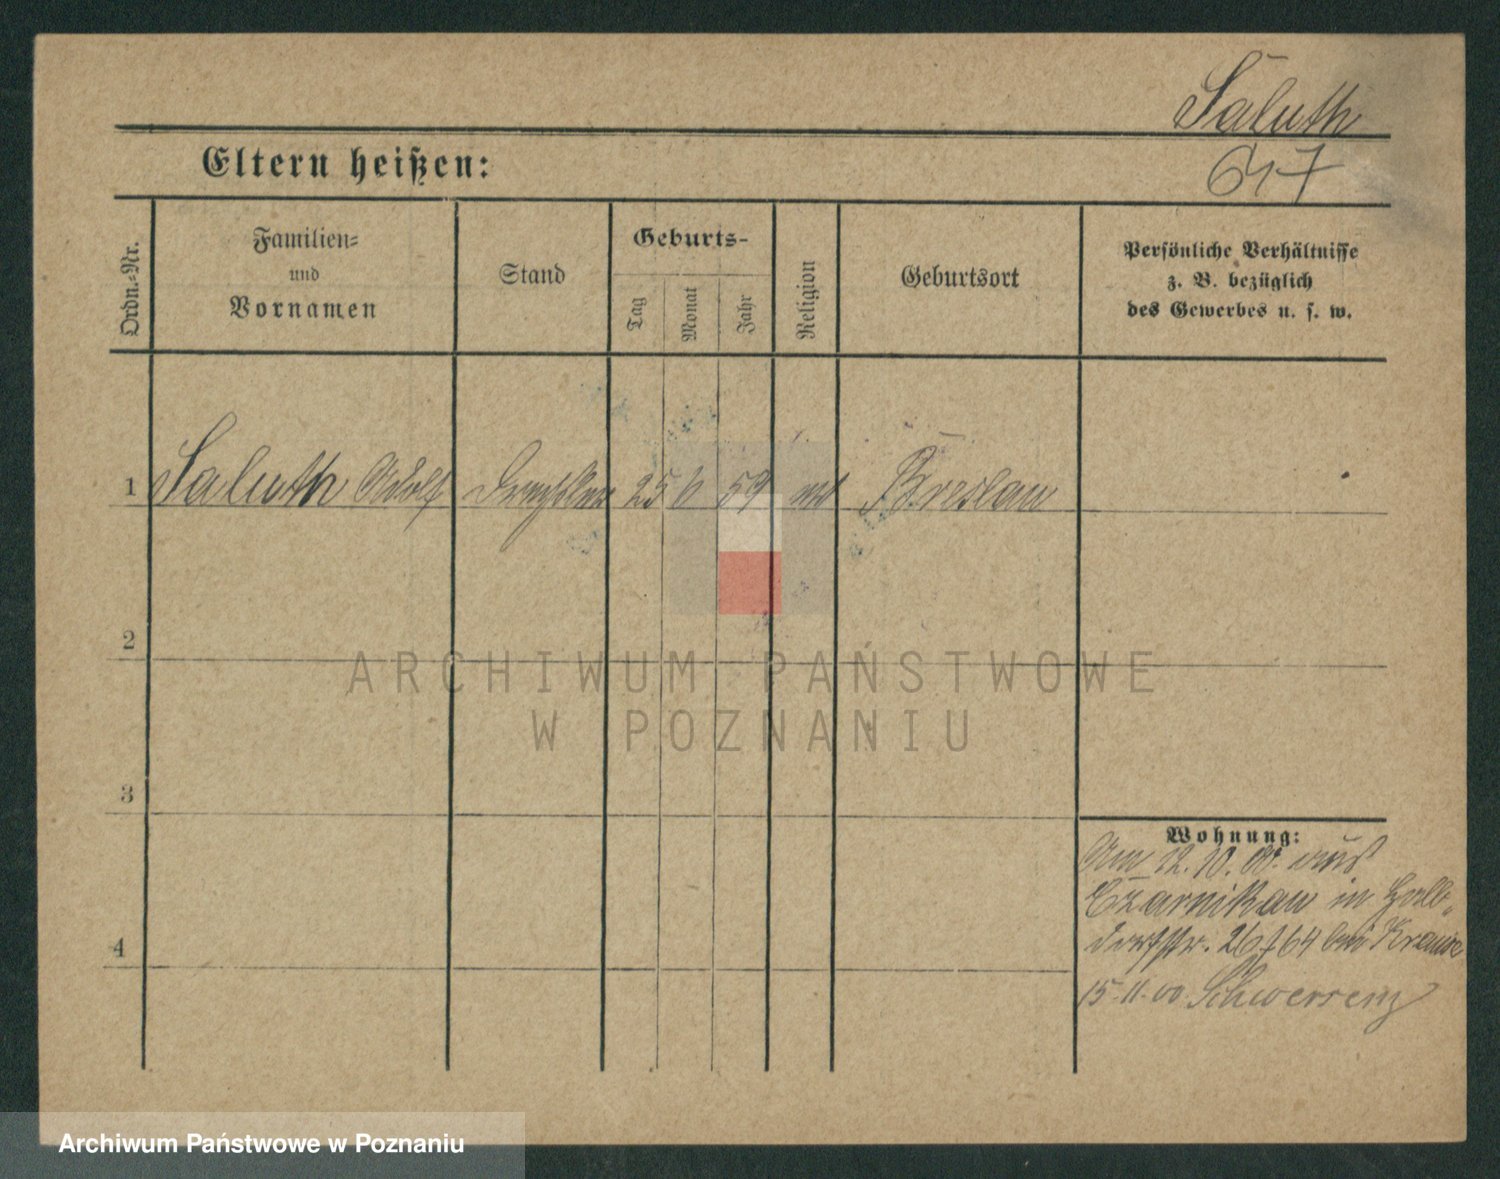 Saluth
617
Eltern heißen:
Ordn.-Nr.
Familien-
und
Vornamen
Stand
Geburts-
Tag
Monat
Jahr
Religion
Geburtsort
Persönliche Verhältnisse
z. B. bezüglich
des Gewerbes u. s. w.
1 Saluth Adolf Drechsler 25 6 59 Breslau
2
3
4
Wohnung:
Am 12.10.00. aus
Czarnikau in Halb-
dorfstr. 26/64 bei Krause
15.11.00 Schwersenz
ARCHIWUM PAŃSTWOWE
W POZNANIU
Archiwum Państwowe w Poznaniu